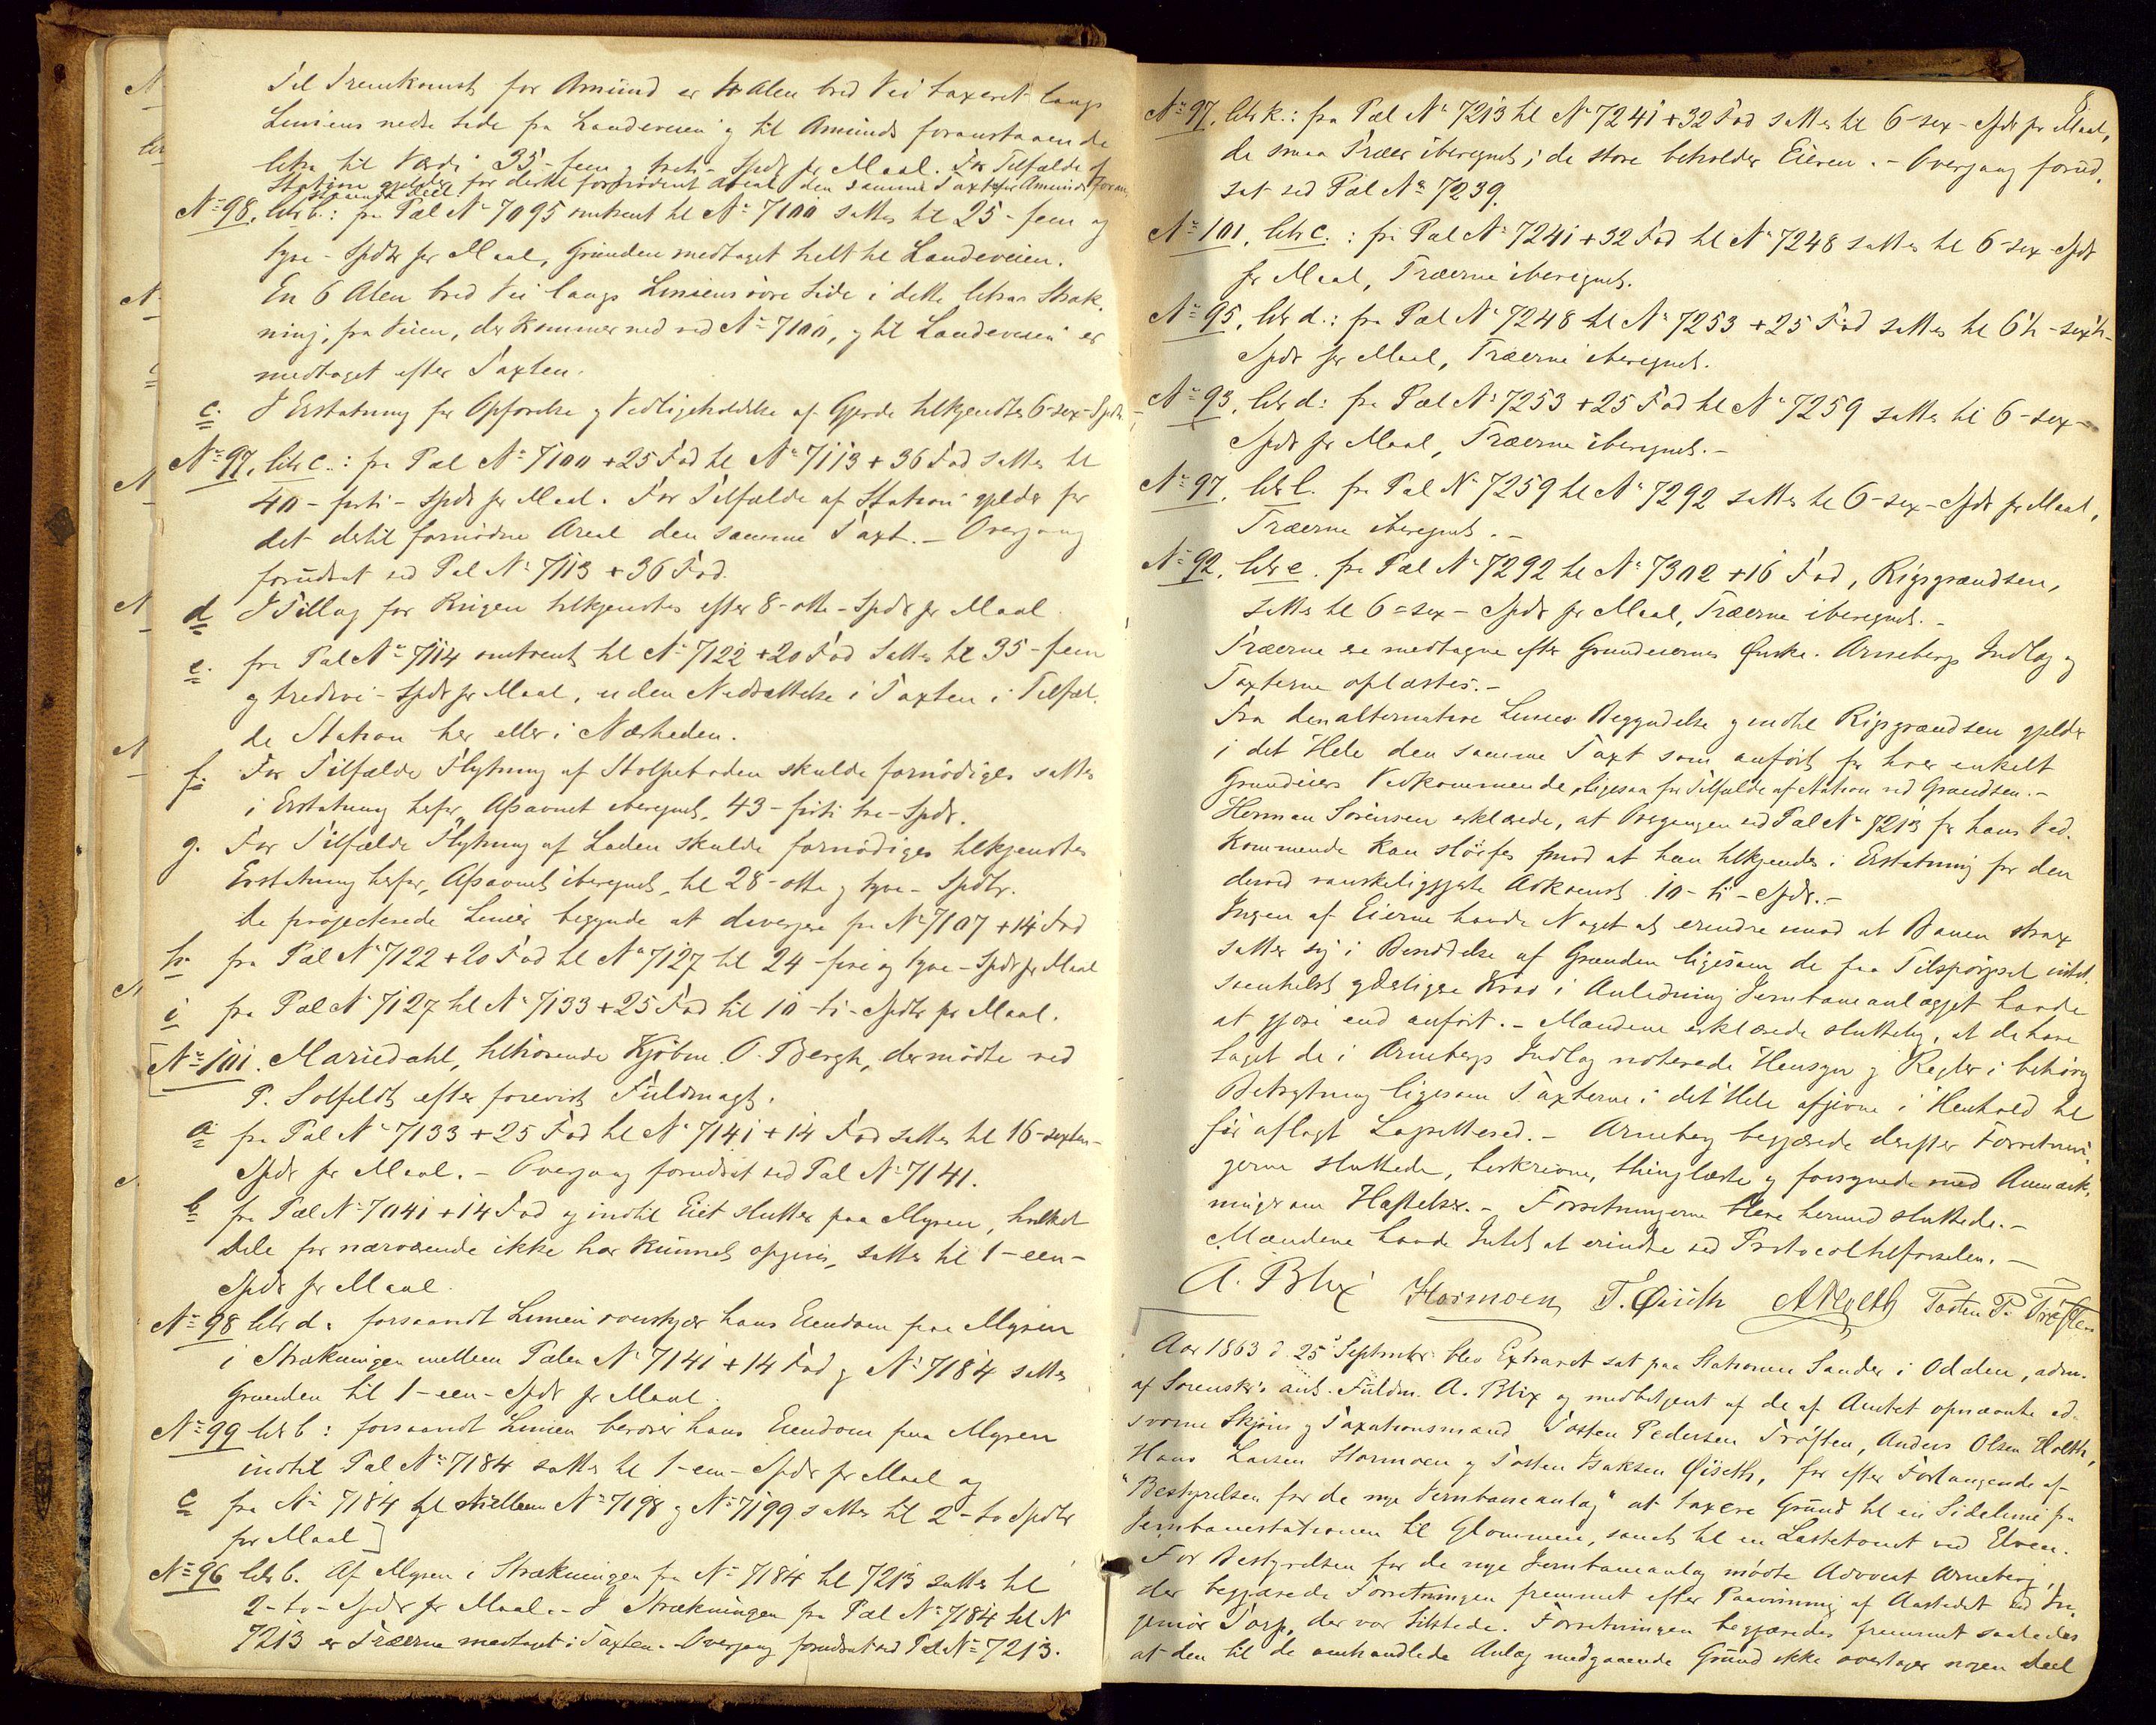 Til Fremkomst for Amund er 4 Alen bred Vei taxeret langs
Liniens nedre Side fra Landeveien og til Amunds foranstaaende
litra til Værdi 35 - fem og treti - Spdr pr Maal. For Tilfælde af
Station gjelder for dertil fornødent Areal den samme Taxt som for Amunds foran-
staaende Deel.
No 98. litr b.: fra Pæl No 7095 omtrent til No 7100 sattes til 25 - fem og
tyve - Spdlr pr Maal, Grunden medtaget helt til Landeveien.
En 6 Alen bred Vei langs Liniens øvre Side i dette litras Stræk-
ning, fra Veien, der kommer ned ved No 7100, og til Landeveien er
medtaget efter Taxten.
c. I Erstatning for Opførelse og Vedligeholdelse af Gjerde tilkjendtes 6 - sex - Spdlr
No 97. litr c.: fra Pæl No 7100 + 25 Fod til No 7113 + 36 Fod sattes til
40 - forti - Spdr pr Maal. For Tilfælde af Station gjelder for
det dertil fornødne Areal den samme Taxt. - Overgang
forudsat ved Pæl No 7113 + 36 Fod.
d I Tillæg for Krigen tilkjendtes efter 8 - otte - Spdr pr Maal.
e. fra Pæl No 7114 omtrent til No 7122 + 20 Fod sattes til 35 - fem
og tredive - Spdr pr Maal, uden Nedsættelse i Taxten i Tilfæl-
de Station her eller i Nærheden.
f. For Tilfælde Flytning af Stolpeboden skulde fornødiges sattes
i Erstatning herfor, Afsavnet iberegnet, 43 - forti tre - Spdr.
g. For Tilfælde Flytning af Laden skulde fornødiges tilkjendtes
Erstatning herfor, Afsavnet iberegnet, til 28 - otte og tyve - Spdlr.
De projecterede Linier begynde at divergere fra No 7107 + 14 Fod
h. fra Pæl No 7122 + 20 Fod til No 7127 til 24 - fire og tyve - Spdr pr Maal
i fra Pæl No 7127 til No 7133 + 25 Fod til 10 - ti - Spdlr pr Maal.
[No 101. Mariedahl, tilhørende Kjøbm. O. Bergh, der mødte ved
P. Solfeldt efter forevist Fuldmagt.
a fra Pæl No 7133 + 25 Fod til No 7141 + 14 Fod sattes til 16 - sexten -
Spdr pr Maal. - Overgang forudsat ved Pæl No 7141.
b fra Pæl No 7041 + 14 Fod og indtil Eiet slutter paa Myren, hvilket
Dele for nærværende ikke har kunnet opgives, sattes til 1 - een -
Spdr pr Maal.
No 98 litr d. forsaavidt Linien overskjær hans Eiendom paa Myren
i Strækningen mellem Pælen No 7141 + 14 Fod og No 7184 sattes
Grunden til 1 - een - Spdr pr Maal.
No 99 litr b: forsaavidt Linien berører hans Eiendom paa Myren
indtil Pæl No 7184 sattes til 1 - een - Spdr pr Maal og
c fra No 7184 til mellem No 7198 og No 7199 sattes til 2 - to Spdlr
pr Maal]
No 96 litr b. Af Myren i Strækningen fra No 7184 til 7213 sattes til
2 - to - Spdr pr Maal. - I Strækningen fra Pæl No 7184 til N
7213 er Træerne medtaget i Taxten. Overgang forudsat ved Pæl No 7213.
8.
No 97. litr k.: fra Pæl No 7213 til No 7241 + 32 Fod sattes til 6 - sex - Spdr pr Maal,
de smaa Træer iberegnet; de store beholder Eieren. - Overgang forud-
sat ved Pæl No 7239.
No 101. litr c.: fra Pæl No 7241 + 32 Fod til No 7248 sattes til 6 - sex Spdr
pr Maal, Træerne iberegnet.
No 95. litr d.: fra Pæl No 7248 til No 7253 + 25 Fod sattes til 6½ - sex ½ -
Spdr pr Maal, Træerne iberegnet.
No 93. litr d: fra Pæl No 7253 + 25 Fod til No 7259 sattes til 6 - sex -
Spdr pr Maal, Træerne iberegnet. -
No 97. litr l. fra Pæl No 7259 til No 7292 sattes til 6 - sex - Spdr pr Maal,
Træerne iberegnet. -
No 92. litr e. fra Pæl No 7292 til No 7302 + 16 Fod, Rigsgrændsen,
sattes til 6 = sex - Spdr pr Maal, Træerne iberegnet. -
Træerne ere medtagne efter Grundeiernes Ønske. Arnebergs Indlæg og
Taxterne oplæstes. -
Fra den alternative Linies Begyndelse og indtil Rigsgrændsen gjelder
i det Hele den samme Taxt som anført for hver enkelt
Grundeiers Vedkommende, ligesaa for Tilfælde af Station ved Grændsen. -
Herman Sørensen erklærede, at Overgangen ved Pæl No 7213 for hans Ved-
kommende kan sløifes mod at han tilkjendes i Erstatning for den
derved vanskeliggjorte Adkomst 10 - ti - Spdr. -
Ingen af Eierne havde Noget at erindre imod at Banen strax
sætter sig i Besiddelse af Grunden ligesom de paa Tilspørgsel intet-
somhelst yderligere Krav i Anledning Jernbaneanlægget havde
at gjøre end anført. - Mændene erklærede sluttelig, at de have
taget de i Arnebergs Indlæg noterede Hensyn og Regler i behørig
Betragtning ligesom Taxterne i det Hele afgivne i Henhold til
før aflagt Lagrettesed. - Arneberg begjærede derefter Forretnin-
gerne sluttede, beskrevne, thinglæste og forsynede med Anmærk-
ninger om Hæftelser. - Forretningerne bleve hermed sluttede. -
Mændene havde Intet at erindre ved Protocoltilførselen. -
A. Blix Hormoen T. Øiseth AOHolth Tosten P. Trøften
Aar 1863 d. 25 September blev Extraret sat paa Stationen Sander i Odalen, adm.
af Sorenskr's aut. Fuldm. A. Blix og medbetjent af de af Amtet opnævnte ed-
svorne Skjøns og Taxationsmænd Tosten Pedersen Trøften, Anders Olsen Holth,
Hans Larsen Hormoen og Tosten Isaksen Øiseth, for efter Forlangende af
"Bestyrelsen for de nye Jernbaneanlæg" at taxere Grund til en Sidelinie fra
Jernbanestationen til Glommen, samt til en Lastetomt ved Elven.
For Bestyrelsen for de nye Jernbaneanlæg mødte Advocat Arneberg,
der begjærede Forretningen fremmet efter Paavisning af Aastedet ved In-
geniør Torp, der var tilstede. Forretningen begjæredes fremmet saaledes
at den til de omhandlede Anlæg medgaaende Grund ikke overtager nogen Deel